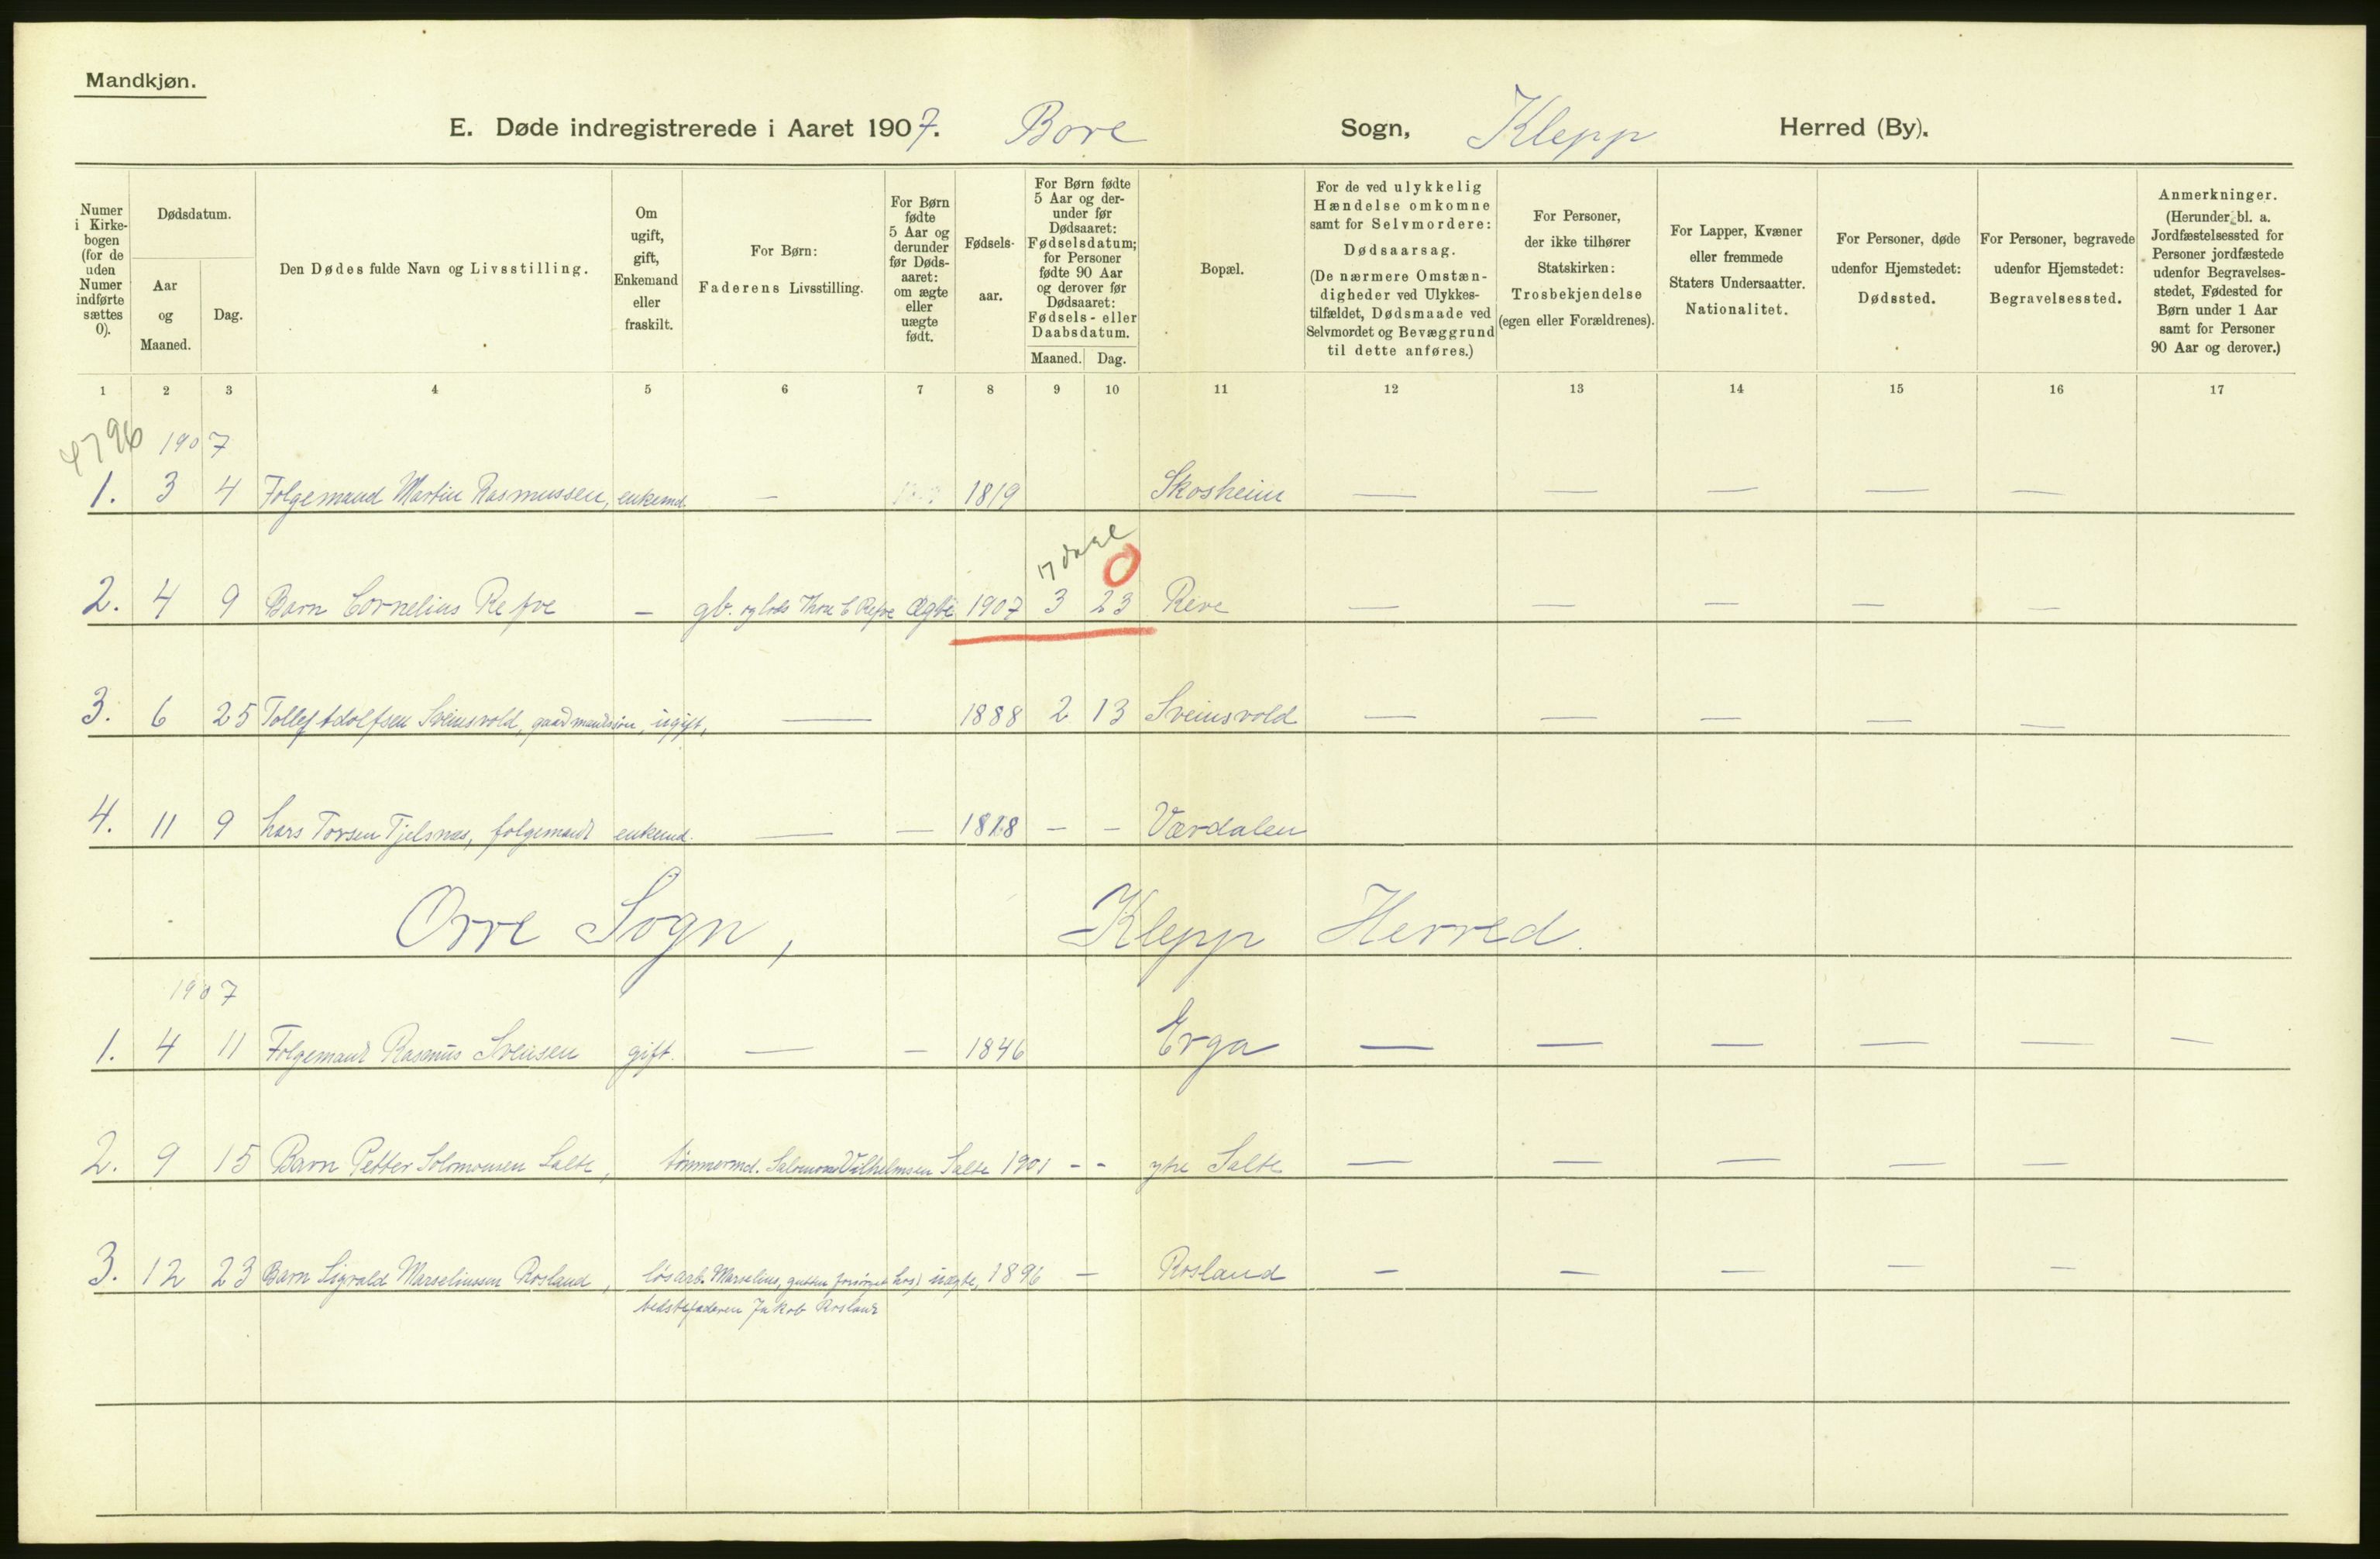 Mandkjøn.
E. Døde indregistrerede i Aaret 1907. Bore Sogn, Klepp Herred (By).
Numer i Kirkebogen (for de uden Numer indførte sættes 0).
Dødsdatum.
Aar og Maaned.
Dag.
Den Dødes fulde Navn og Livsstilling.
Om ugift, gift, Enkemand eller fraskilt.
For Børn: Faderens Livsstilling.
For Børn fødte 5 Aar og derunder før Dødsaaret: om ægte eller uægte født.
Fødselsaar.
For Børn fødte 5 Aar og derunder før Dødsaaret: Fødselsdatum; for Personer fødte 90 Aar og derover før Dødsaaret: Fødsels- eller Daabsdatum.
Maaned. Dag.
Bopæl.
For de ved ulykkelig Hændelse omkomne samt for Selvmordere: Dødsaarsag. (De nærmere Omstændigheder ved Ulykkestilfældet, Dødsmaade ved Selvmordet og Bevæggrund til dette anføres.)
For Personer, der ikke tilhører Statskirken: Trosbekjendelse (egen eller Forældrenes).
For Lapper, Kvæner eller fremmede Staters Undersaatter. Nationalitet.
For Personer, døde udenfor Hjemstedet: Dødssted.
For Personer, begravede udenfor Hjemstedet: Begravelsessted.
Anmerkninger. (Herunder bl. a. Jordfæstelsessted for Personer jordfæstede udenfor Begravelsesstedet, Fødested for Børn under 1 Aar samt for Personer 90 Aar og derover.)
1 2 3 4 5 6 7 8 9 10 11 12 13 14 15 16 17
4796 1907
1. 3 4 Folgemand Martin Rasmussen, enkemd — 1819 Skosheim — — — — —
7 dage 0
2. 4 9 Barn Cornelius Refve — gb. og lods Thore C Refve Ægte 1907 3 23 Reve — — — — —
3. 6 25 Tollef Adolfsen Sveinsvold, gaardmandssøn, ugift, — 1888 2 13 Sveinsvold — — — — —
4. 11 9 Lars Torsen Tjelsnes, folgemand enkemd. — — 1818 — — Værdalen
Orre Sogn, Klepp Herred.
1907
1. 4 11 Folgemand Rasmus Svensen gift. — — 1846 Erga — — — — — —
2. 9 15 Barn Petter Solomonsen Salte, tømmermd. Salomon Vilhelmsen Salte 1901 - - ytre Salte — — — — —
3. 12 23 Barn Sigvald Marseliussen Rosland, løsarb. Marselius, gutten forsørget hos) uægte, 1896 — Rosland — — — — —
bedstefaderen Jakob Rosland